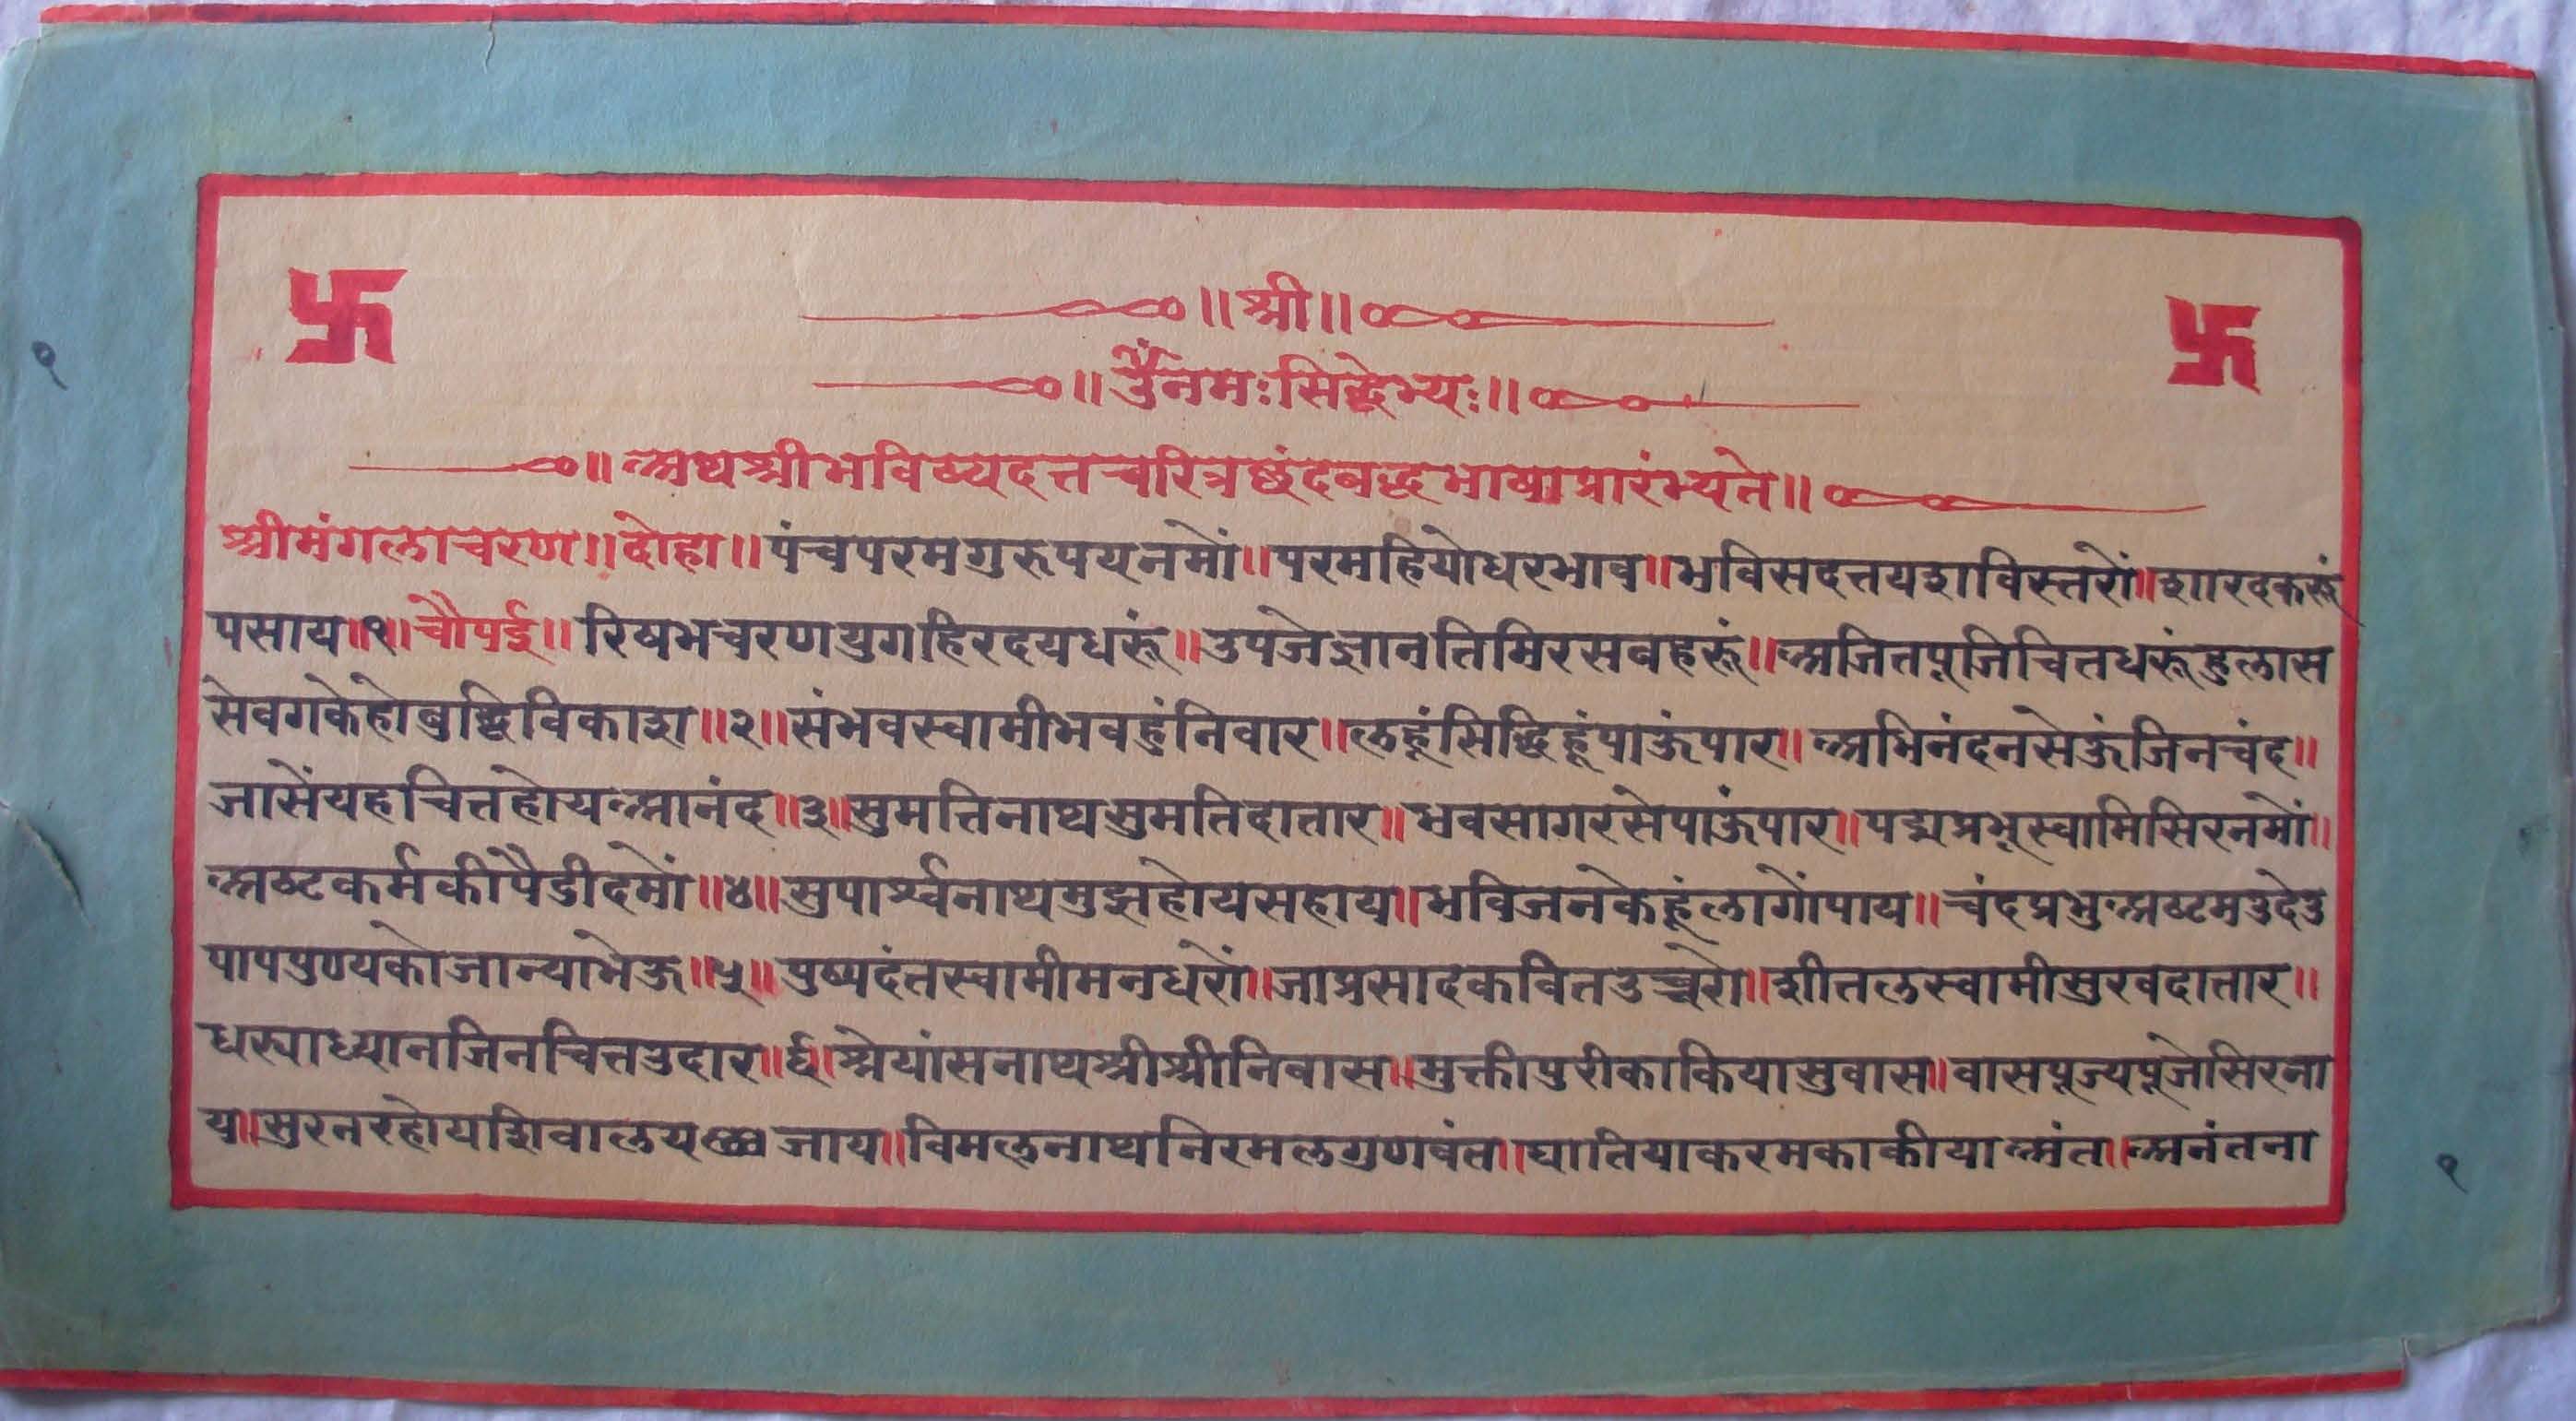 ॥श्री॥
॥ॐनमःसिद्धेभ्यः॥
॥अथश्रीभविष्यदत्तचरित्रछंदबद्धभाषाप्रारंभ्यते॥
श्रीमंगलाचरण॥दोहा॥पंचपरमगुरुपयनमों॥परमहियोधरभाव॥भविसदत्तयशविस्तरों॥शारदकरूं
पसाय॥१॥चौपई॥रिषभचरणयुगहिरदयधरूं॥उपजेज्ञानतिमिरसबहरूं॥अजितपूजिचितधरूंहुलास
सेवगकेहोबुद्धिविकाश॥२॥संभवस्वामीभवहुंनिवार॥लहूंसिद्धिहूंपाऊंपार॥अभिनंदनसेऊंजिनचंद॥
जासेंयहचितहोयआनंद॥३॥सुमतिनाथसुमतिदातार॥भवसागरसेपाऊंपार॥पद्मप्रभूस्वामिसिरनमों॥
अष्टकर्मकीपैडीदमों॥४॥सुपार्श्वनाथमुझहोयसहाय॥भविजनकेहूंलागोंपाय॥चंदप्रभुअष्टमउदेउ
पापपुण्यकोजान्याभेऊ॥५॥पुष्पदंतस्वामीमनधरों॥जाप्रसादकवितउच्चरो॥शीतलस्वामीसुखदातार॥
धस्याध्यानजिनचित्तउदार॥६॥श्रेयांसनाथश्रीश्रीनिवास॥मुक्तीपुरीकाकियासुवास॥वासपूज्यपूजेसिरना
य॥सुरनरहोयशिवालयजाय॥विमलनाथनिरमलगुणवंत॥घातियाकरमकाकीयाअंत॥अनंतना
१
१